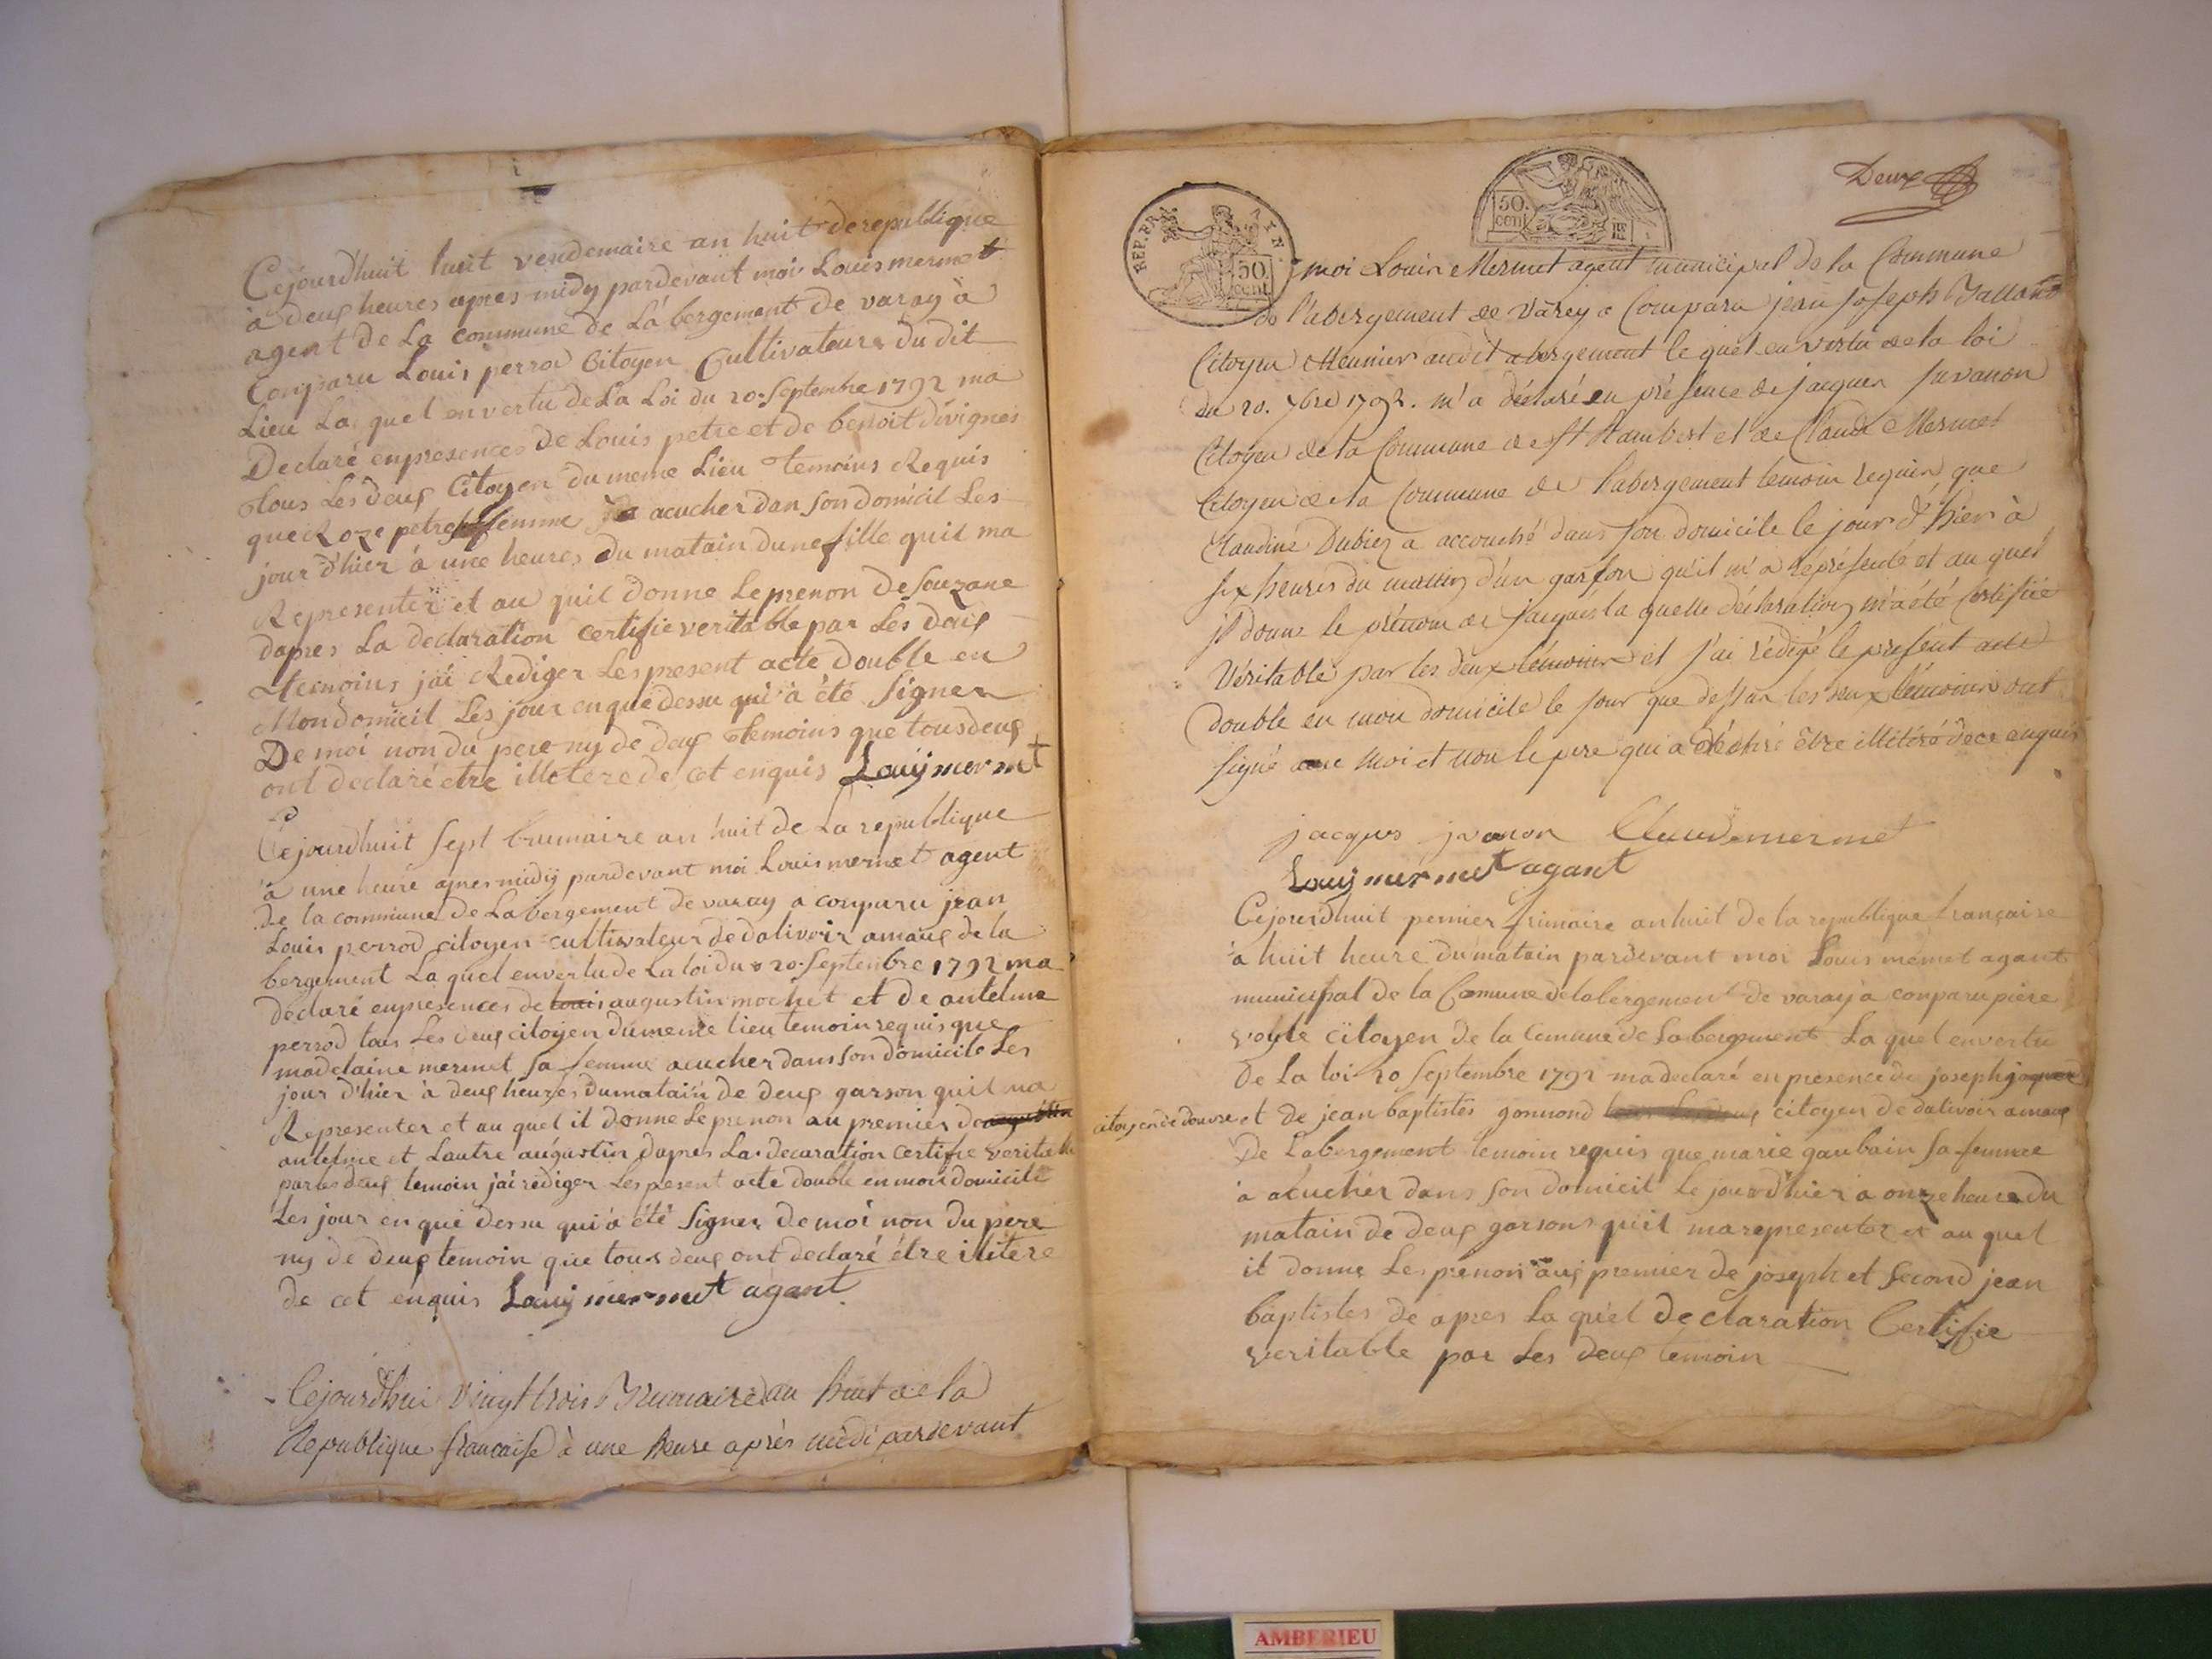 Cejourdhuit huit vendemaire an huit de republique
à deux heures apres midy pardevant moi Louis mermet
agent de La commune de Labergement de varay à
Conparu Louis perrod Citoyen Cultivateure du dit
Lieu La quel en vertu de La Loi du 20 Septembre 1792 ma
Declaré enpresences de Louis petre et de benoit
tous Les deux Citoyen du meme Lieu temoins Requis
que Roze petre femme acucher dan son domicil Les
jour d'hier à une heures du matain dune fille quil ma
Representer et au quil donne Le prenon de Souzane
dapres La declaration certifie veritable par Les
temoins jai Rediger Les present acte double en
Mon domicil Les jour en que dessu qui à été Signer
De moi non du pere ny de deux temoins que tous deux
ont declaré etre illetere de cet enquis Louij mermet
Cejourdhuit Sept brumaire an huit de La republique
à une heure apres midij pardevant moi Louis mermet agent
de la commune de Labergement de varay a conparu jean
Louis perrod citoyen cultivateur de dalivoir amaux de la
bergement La quel en vertu de La loi du 20 Septembre 1792 ma
déclaré enpresences de augustin mochet et de antelme
perrod tous Les deux citoyen du meme lieu temoin requis que
madelaine mermet sa femme acucher dans son domicile Les
jour d'hier à deux heures du matain de deux garson quil ma
Representer et au quel il donne Le prenon au premier de augustin
antelme et Lautre augustin dapres La decaration certifie veritable
par les deux temoin jai rediger Les pesent acte double en mon domicile
Les jour en que dessu qui à été Signer de moi non du pere
ny de deux temoin que tous deux ont declaré étre ilitere
de cet enquis Louij mermet agant
Cejourdhui vingt trois Brumaire an huit de la
Republique française à une heure après midi pardevant
Deux
REP. FRA. AIN.
50 cent
50. cent
moi Louis Mermet agent municipal de la Commune
de l'abergement de Varey a Comparu jean joseph
Citoyen Meunier audit abergement le quel en vertu de la loi
du 20. 7bre 1792. m'a déclaré en présence de jacques juvanon
Citoyen de la Commune de St Rambert et de Claude Mermet
Citoyen de la Commune de l'abergement temoin requis que
Claudine Dubiez a accouché dans son domicile le jour d'hier à
six heures du mattin d'un garson qu'il m'a réprésenté et au quel
il donne le prénom de jacques la quelle déclaration m'a été Certifié
Véritable par les deux témoins et j'ai rédigé le présent acte
double en mon domicile le jour que dessus les deux témoins ont
signé avec moi et non le pere qui a déclaré être illitéré de ce enquis
jacques jvanon Claude mermet
Louij mermet agant
Cejourdhuit pemier frimaire an huit de la republique française
à huit heure du matain pardevant moi Louis memet agant
municipal de la Comune de labergement de varay a conparu piere
voyle citoyen de la Comune de Labergement La quel en vertu
De La loi 20 Septembre 1792 ma declaré en presence de joseph jaquer
citoyen de douvre et de jean baptistes gonnond citoyen de dalivoir amaux
De Labergement temoin requis que marie gaubain sa femme
à acucher dans son domicil Le jour d'hier a onze heure du
matain de deux garsons quil ma representer et au quel
il donne Les prenon aux premier de joseph et Second jean
baptistes de apres La quel declaration Certifie
veritable par Les deux temoin
AMBERIEU